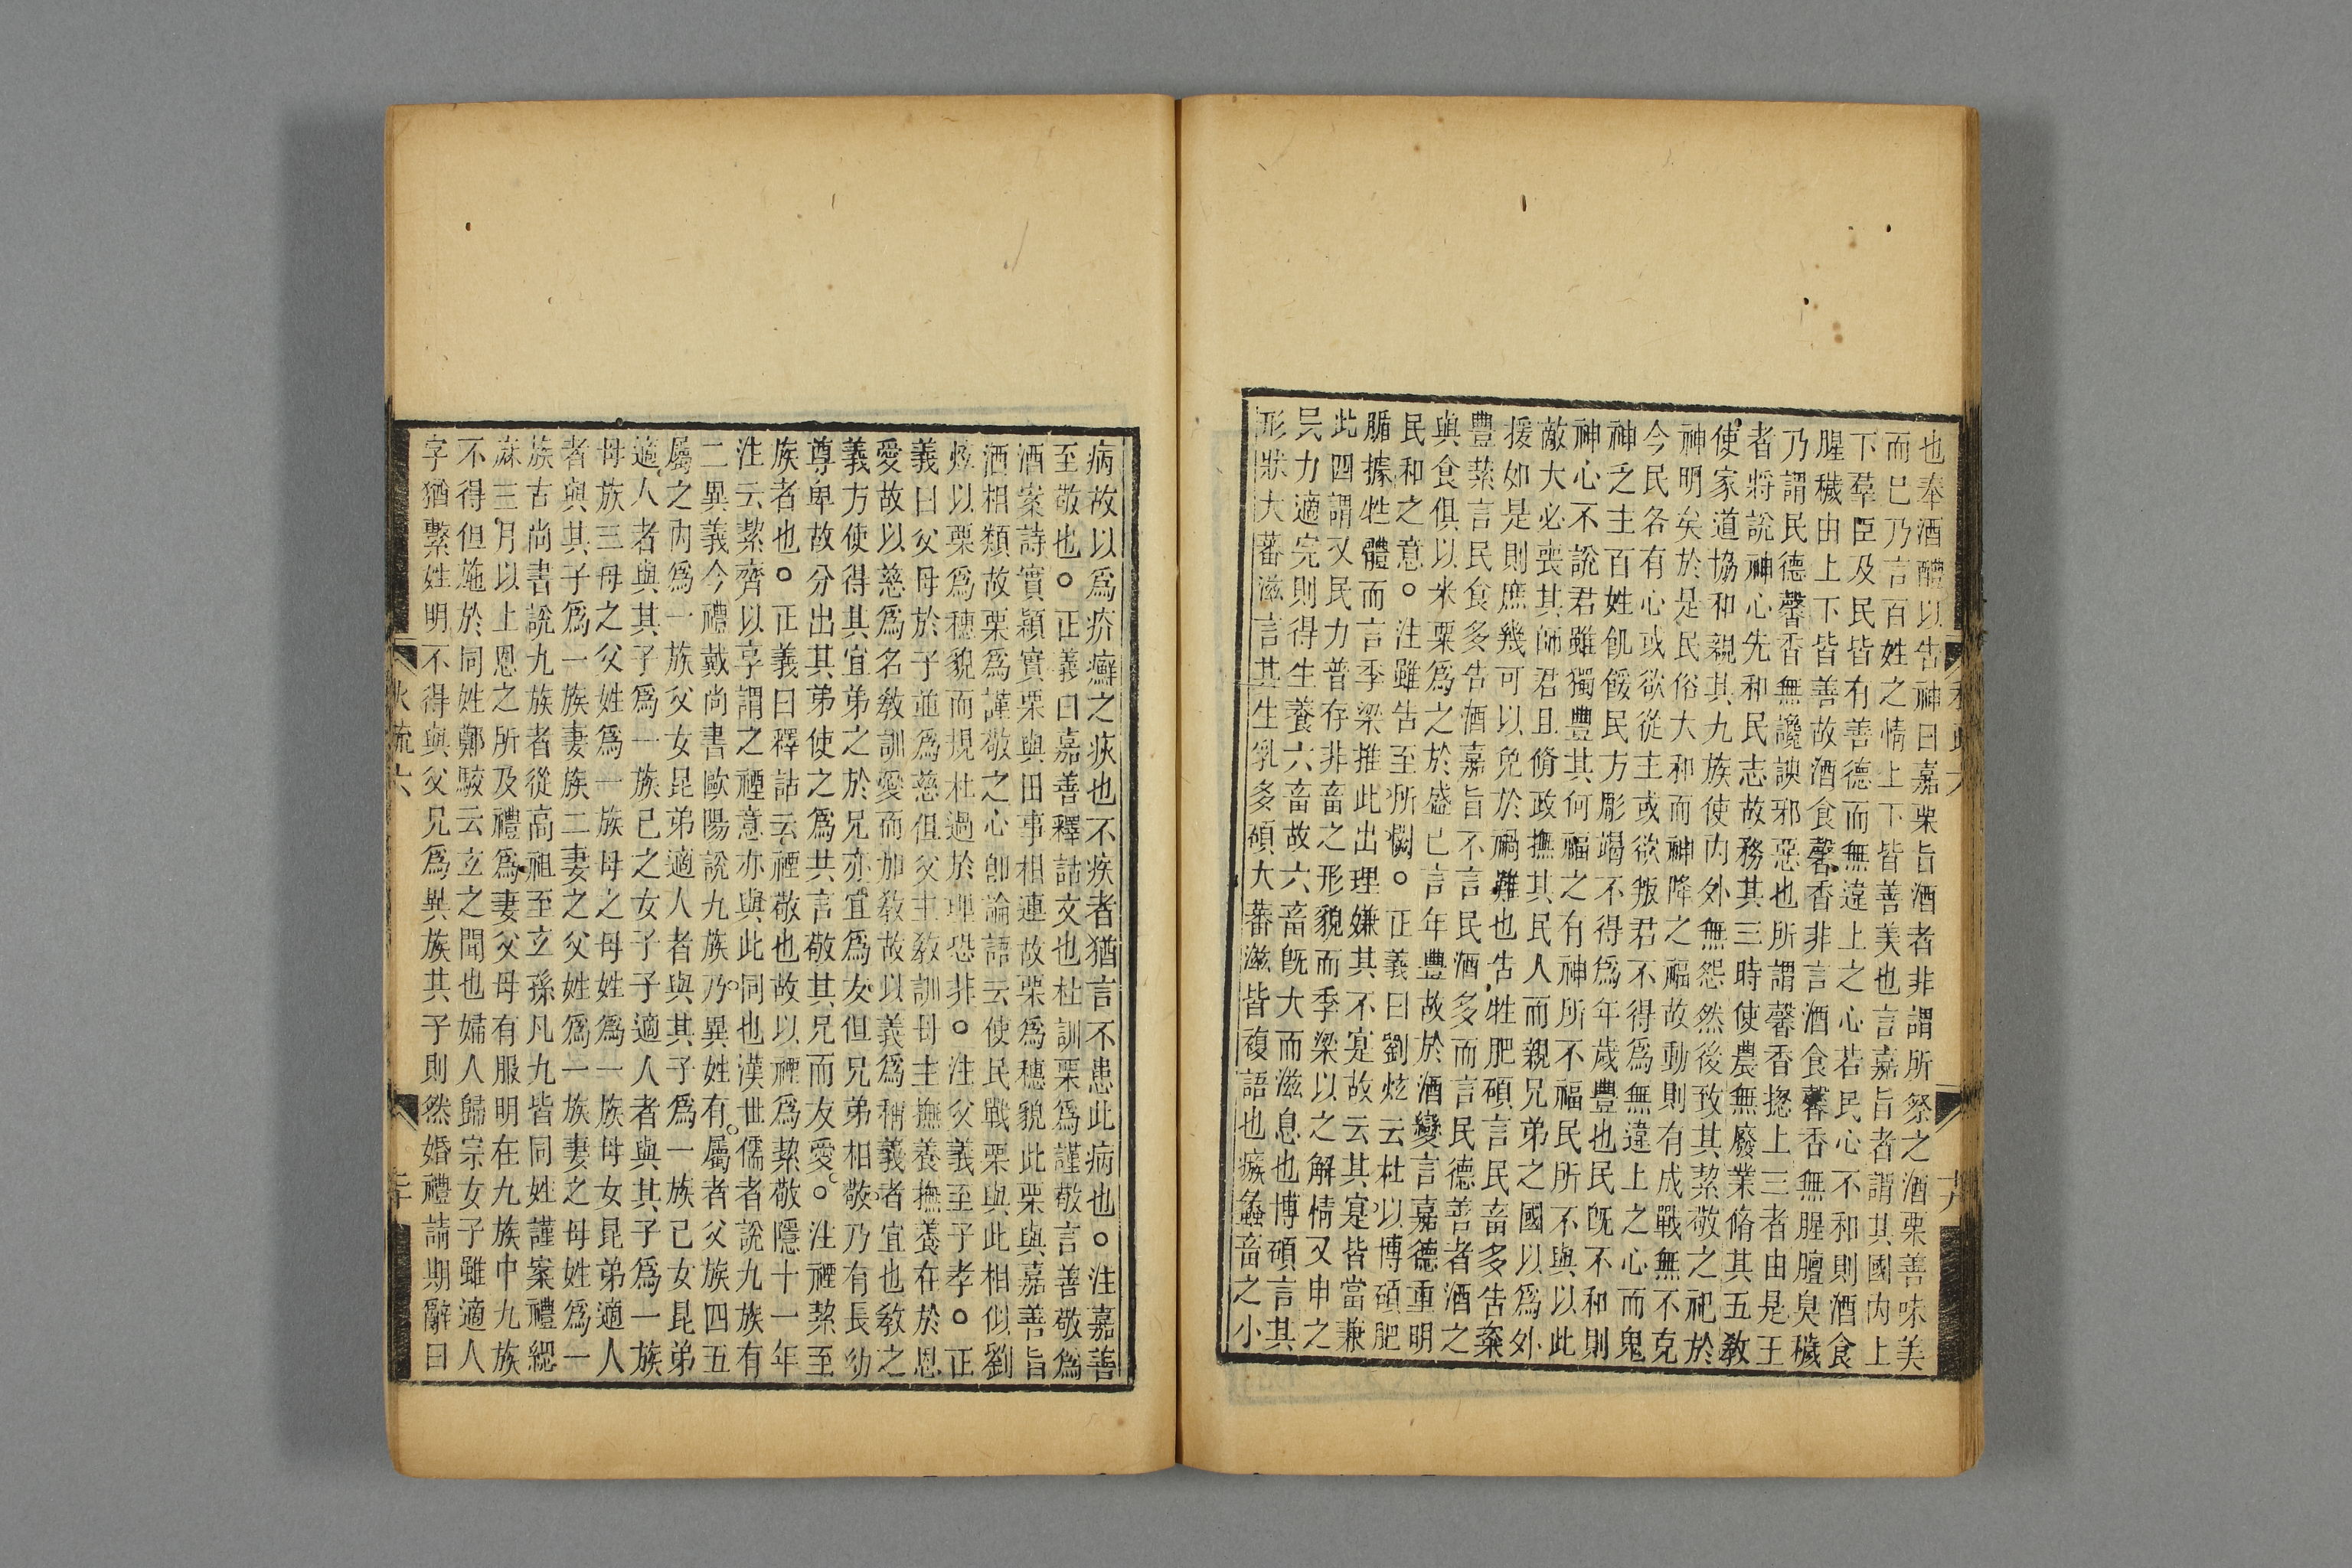 也奉酒醴以告神曰嘉栗旨酒者非謂所祭之酒栗善味美
而巳乃言百姓之情上下皆善美也言嘉旨者謂其國内上
下羣臣及民皆有善德而無違上之心若民心不和則酒食
腥穢由上下皆善故酒食馨香非言酒食馨香無腥膻臭穢
乃謂民德馨香無讒諛邪惡也所謂馨香揔上三者由是王
者將說神心先和民志故務其三時使農無廢業脩其五教
使家道協和親其九族使内外無怨然後致其絜敬之祀於
神明矣於是民俗大和而神降之福故動則有成戰無不克
今民各有心或欲從主或欲叛君不得爲無違上之心而鬼
神乏主百姓飢餒民方彫竭不得爲年歲豐也民既不和則
神心不說君雖獨豐其何福之有神所不福民所不與以此
敵大必喪其師君且脩政撫其民人而親兄弟之國以爲外
援如是則庶幾可以免於禍難也告牲肥碩言民畜多告粢
豐絜言民食多告酒嘉旨不言民酒多而言民德善者酒之
與食俱以米粟爲之於盛巳言年豐故於酒變言嘉德重明
民和之意。注雖告至所闕。正義曰劉炫云杜以博碩肥
腯據牲體而言季梁推此出理嫌其不寔故云其寔皆當兼
此四謂又民力普存非畜之形貌而季梁以之解情又申之
民力適完則得生養六畜故六畜既大而滋息也博碩言其
形狀大蕃滋言其生乳多碩大蕃滋皆複語也瘯蠡畜之小
病故以爲疥癬之疾也不疾者猶言不患此病也。注嘉善
至敬也。正義曰嘉善釋詁文也杜訓栗爲謹敬言善敬爲
酒案詩實穎實栗與田事相連故栗爲穗貌此栗與嘉善旨
酒相類故栗爲謹敬之心卽論語云使民戰栗與此相似劉
炫以栗爲穗貌而規杜過於理恐非。注父義至子孝。正
義曰父母於子並爲慈但父主敎訓母主撫養撫養在於恩
愛故以慈爲名敎訓愛而加敎故以義爲稱義者宜也敎之
義方使得其宜弟之於兄亦宜爲友但兄弟相敬乃有長幼
尊卑故分出其弟使之爲共言敬其兄而友愛。注禋絜至
族者也。正義曰釋詁云禋敬也故以禋爲絜敬隱十一年
注云絜齊以享謂之禋意亦與此同也漢世儒者說九族有
二異義今禮戴尚書歐陽說九族乃異姓有屬者父族四五
屬之内爲一族父女昆弟適人者與其子爲一族己女昆弟
適人者與其子爲一族己之女子子適人者與其子爲一族
母族三母之父姓爲一族母之母姓爲一族母女昆弟適人
者與其子爲一族妻族二妻之父姓爲一族妻之母姓爲一
族古尚書說九族者從高祖至玄孫凡九皆同姓謹案禮緦
麻三月以上恩之所及禮爲妻父母有服明在九族中九族
不得但施於同姓鄭駁云玄之聞也婦人歸宗女子雖適人
字猶繫姓明不得與父兄爲異族其子則然婚禮請期辭曰